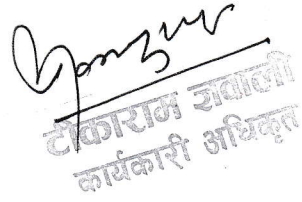 टीकाराम ज्ञवाली
कार्यकारी अधिकृत